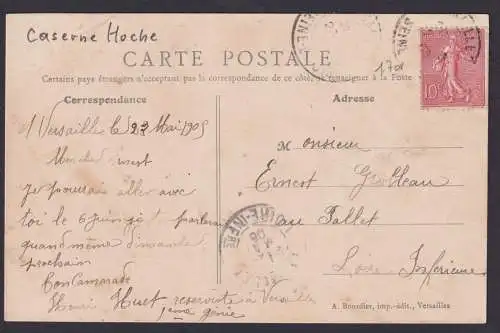 Caserne Hoche
CARTE POSTALE
Certains pays étrangers n'acceptant pas la correspondance de ce côté, se renseigner à la Poste
Correspondance
Adresse
10c
Versailles le 23 Mai 1905
Mon cher Ernest
Je pourrais aller avec
toi le 6 juin
quand même dimanche
prochain
Ton Camarade
Henri Huet réserviste à Versailles
génie
Monsieur
Ernest
au Pallet
Loire Inférieure
A. Bourdier, imp.-édit., Versailles